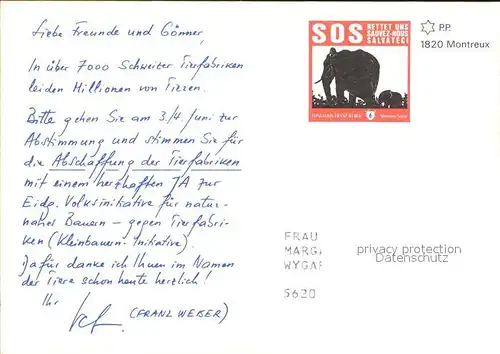 Liebe Freunde und Gönner,
In über 7000 Schweizer Tierfabriken
leiden Millionen von Tieren.
Bitte gehen Sie am 3/4. Juni zur
Abstimmung und stimmen Sie für
die Abschaffung der Tierfabriken
mit einem herzhaften JA zur
Eidg. Volksinitiative für natur-
nahes Bauern – gegen Tierfabri-
ken (Kleinbauern-Initiative).
Dafür danke ich Ihnen im Namen
der Tiere schon heute herzlich!
Ihr
(FRANZ WEBER)
SOS
RETTET UNS
SAUVEZ-NOUS
SALVATECI
P.P.
1820 Montreux
FRAU
MARGA
WYGAR
5620
privacy protection
Datenschutz